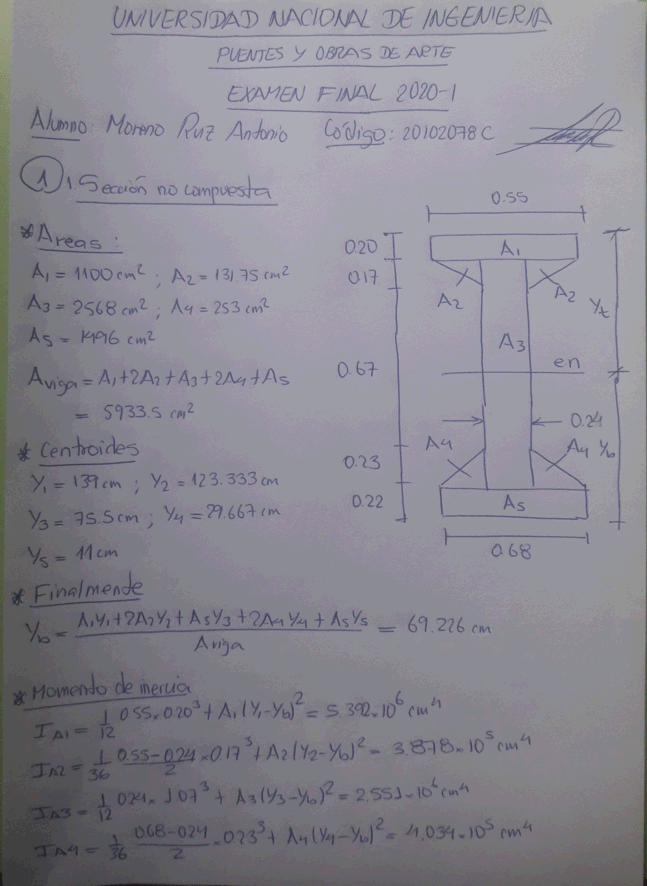 UNIVERSIDAD NACIONAL DE INGENIERIA
PUENTES Y OBRAS DE ARTE
EXAMEN FINAL 2020-1
Alumno: Moreno Ruiz Antonio Código: 20102078C
1) 1. Sección no compuesta
* Areas:
A1 = 1100 cm² ; A2 = 131.75 cm²
A3 = 2568 cm² ; A4 = 253 cm²
A5 = 1496 cm²
Aviga = A1+2A2+A3+2A4+A5
= 5933.5 cm²
* Centroides
Y1 = 139 cm ; Y2 = 123.333 cm
Y3 = 75.5 cm ; Y4 = 29.667 cm
Y5 = 11 cm
0.55
0.20
A1
0.17
A2
A2
Yt
A3
0.67
en
0.24
A4
A4
Yb
0.23
0.22
A5
0.68
* Finalmende
Yb = A1Y1+2A2Y2+A3Y3+2A4Y4+A5Y5 / Aviga = 69.226 cm
* Momento de inercia
IA1 = 1/12 0.55×0.20³ + A1(Y1-Yb)² = 5.392×10⁶ cm⁴
IA2 = 1/36 0.55-0.24/2 ×0.17³ + A2(Y2-Yb)² = 3.878×10⁵ cm⁴
IA3 = 1/12 0.24×1.07³ + A3(Y3-Yb)² = 2.551×10⁶ cm⁴
IA4 = 1/36 0.68-0.24/2 ×0.23³ + A4(Y4-Yb)² = 4.034×10⁵ cm⁴